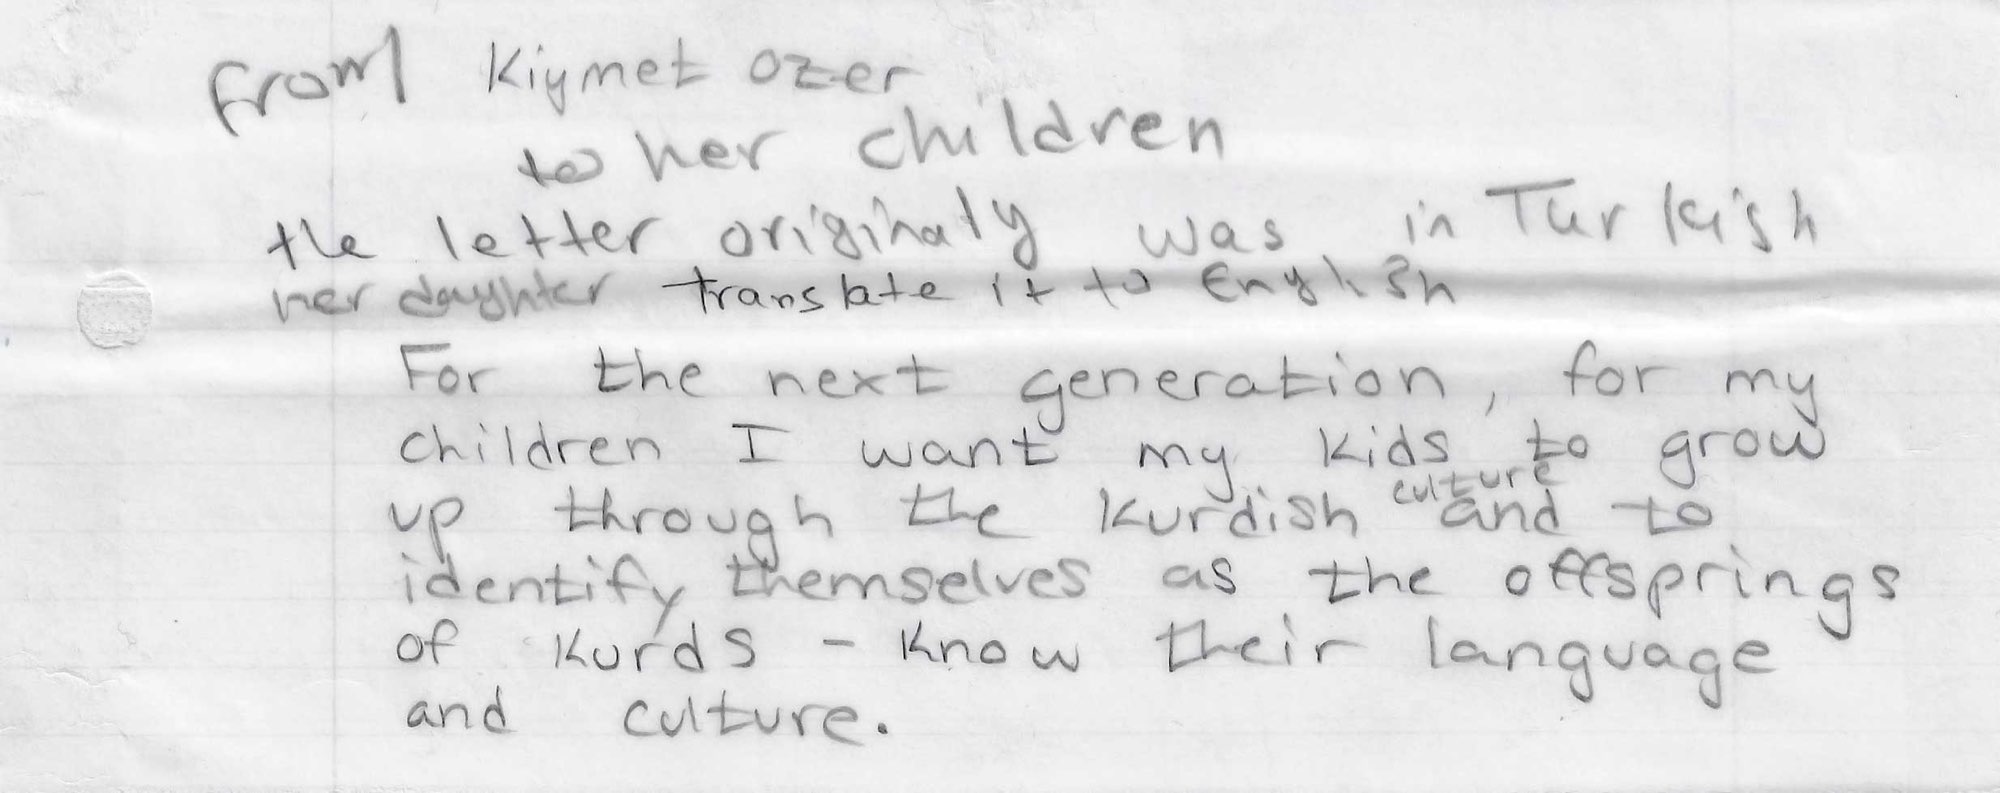 From Kiymet ozer
to her children
the letter originaly was in Turkish
her daughter translate it to English
For the next generation, for my
children I want my kids to grow
up through the Kurdish culture and to
identify themselves as the offsprings
of Kurds - know their language
and culture.